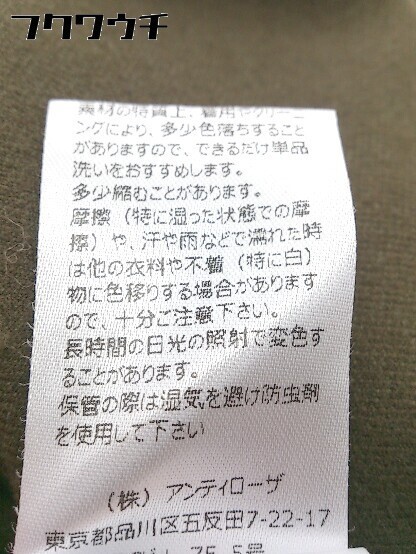 フクワウチ
素材の特質上、着用やクリーニ
ングにより、多少色落ちすること
がありますので、できるだけ単品
洗いをおすすめします。
多少縮むことがあります。
摩擦（特に湿った状態での摩
擦）や、汗や雨などで濡れた時
は他の衣料や不織（特に白）
物に色移りする場合があります
ので、十分ご注意下さい。
長時間の日光の照射で変色す
ることがあります。
保管の際は湿気を避け防虫剤
を使用して下さい
（株）アンティローザ
東京都品川区五反田7-22-17